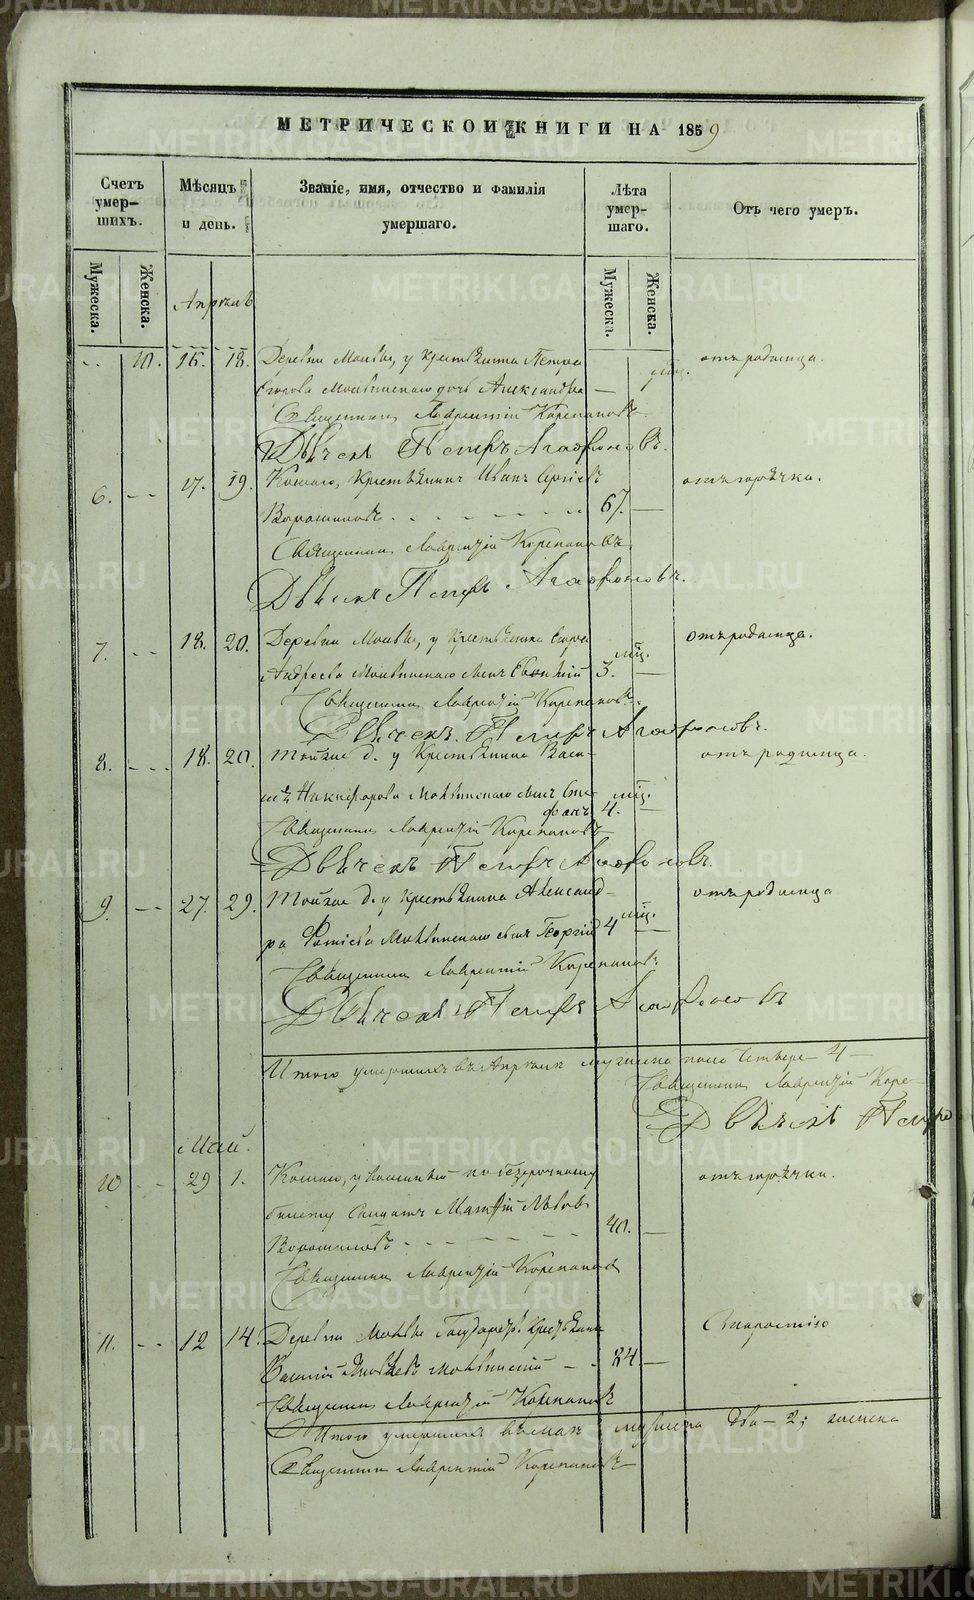 МЕТРИЧЕСКОЙ КНИГИ НА 1859
Счетъ умер-шихъ.
Мѣсяцъ и день.
Званіе, имя, отчество и фамилія умершаго.
Лѣта умер-шаго.
Отъ чего умеръ.
Мужеска.
Женска.
Мужеска.
Женска.
Апрѣль
10. 16. 18. Деревни у крестьянина Петра
отъ родимца.
Егорова дочь Александра —
Священникъ Лаврентій Корепановъ
Дьячекъ Петръ Агафоновъ.
6. -- 17. 19. крестьянинъ Иванъ Сергіевъ
отъ горячки.
Ворошиловъ 67. —
Священникъ Лаврентій Корепановъ
Дьячекъ Петръ Агафоновъ.
7. -- 18. 20. Деревни у крестьянина Егора
отъ родимца.
Андреева сынъ 3. мѣс. —
Священникъ Лаврентій Корепановъ.
Дьячекъ Петръ Агафоновъ.
8. --- 18. 20. Той же д. у крестьянина Васи-
отъ родимца.
лія Никифорова сынъ Сте-
фанъ 4. мѣс. —
Священникъ Лаврентій Корепановъ
Дьячекъ Петръ Агафоновъ.
9. -- 27. 29. Той же д. у крестьянина Александ-
отъ родимца
ра Фотіева сынъ Георгій 4 мѣс. —
Священникъ Лаврентій Корепановъ
Дьячекъ Петръ Агафоновъ
Итого умершихъ въ Апрѣлѣ мужеска пола четверо — 4 —
Священникъ Лаврентій Коре-
Дьячекъ Петръ
Май.
10 -- 29 1. по безсрочному
отъ горячки.
билету Солдатъ Матфій Львовъ
Ворошиловъ 40. —
Священникъ Лаврентій Корепановъ
11. -- 12 14. Деревни Государст. крестьянинъ
Старостію
Василій Яковлевъ 84 —
Священникъ Лаврентій Корепановъ
Итого умершихъ въ маѣ мужеска два — 2; женска
Священникъ Лаврентій Корепановъ
METRIKI.GASO-URAL.RU